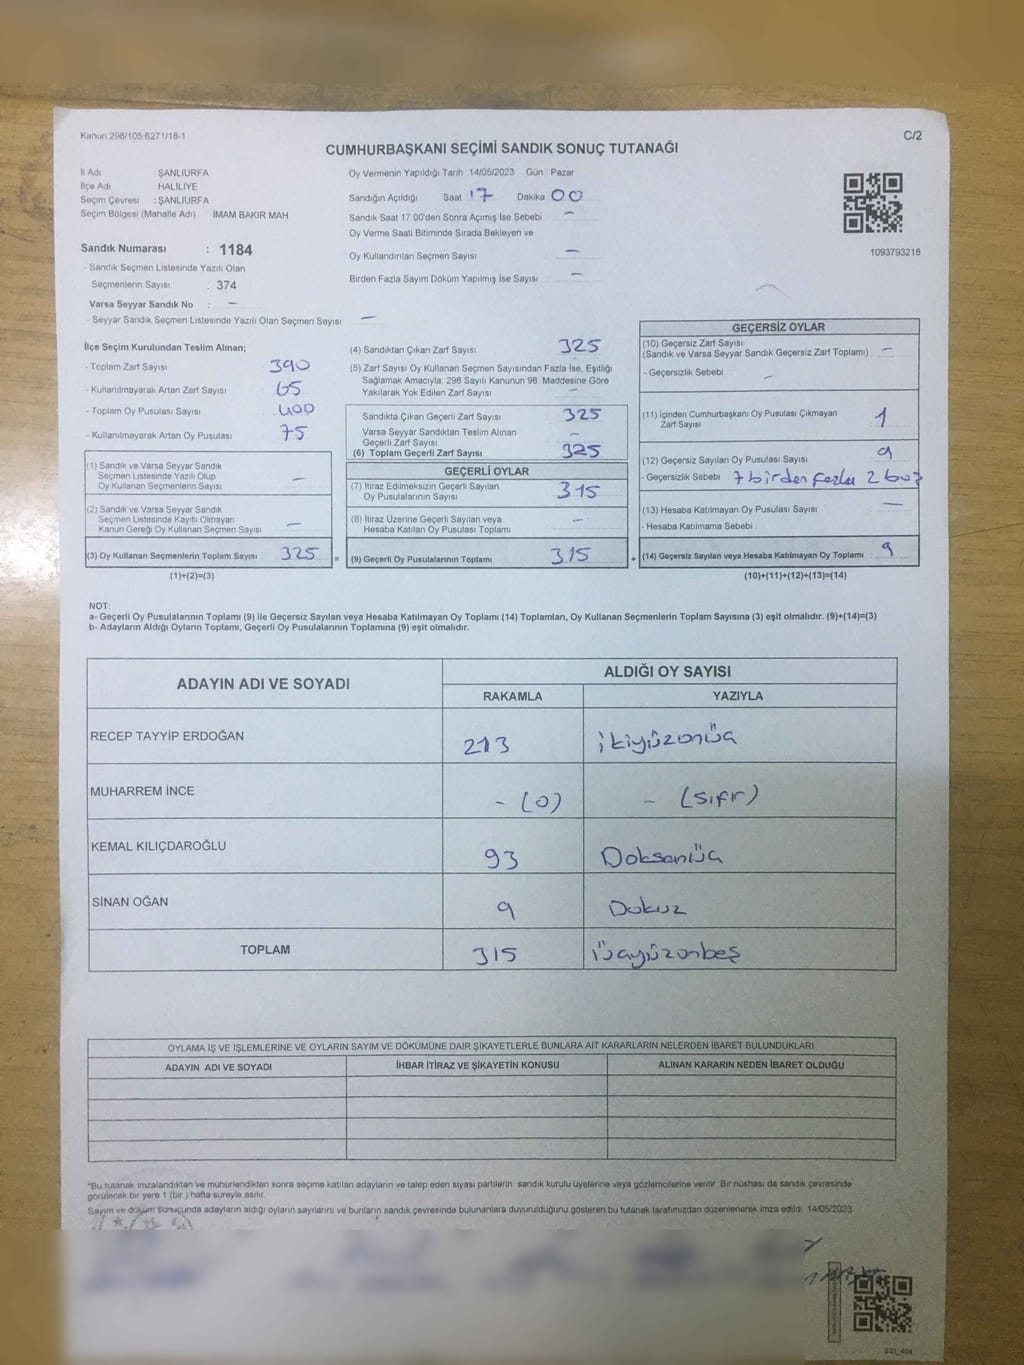 Kanun 298/105 6271/18-1
C/2
CUMHURBAŞKANI SEÇİMİ SANDIK SONUÇ TUTANAĞI
İl Adı ŞANLIURFA
İlçe Adı HALİLİYE
Seçim Çevresi : ŞANLIURFA
Seçim Bölgesi (Mahalle Adı) İMAM BAKIR MAH
Oy Vermenin Yapıldığı Tarih 14/05/2023 Gün Pazar
Sandığın Açıldığı Saat 17 Dakika 00
Sandık Saat 17 00'den Sonra Açımış İse Sebebi -
Oy Verme Saati Bitiminde Sırada Bekleyen ve
Oy Kullandırılan Seçmen Sayısı -
Birden Fazla Sayım Döküm Yapılmış İse Sayısı -
1093793218
Sandık Numarası : 1184
- Sandık Seçmen Listesinde Yazılı Olan
Seçmenlerin Sayısı : 374
Varsa Seyyar Sandık No : -
- Seyyar Sandık Seçmen Listesinde Yazılı Olan Seçmen Sayısı -
İlçe Seçim Kurulundan Teslim Alınan;
- Toplam Zarf Sayısı 390
- Kullanılmayarak Artan Zarf Sayısı 65
- Toplam Oy Pusulası Sayısı 400
- Kullanılmayarak Artan Oy Pusulası 75
(1) Sandık ve Varsa Seyyar Sandık
Seçmen Listesinde Yazılı Olup
Oy Kullanan Seçmenlerin Sayısı -
(2) Sandık ve Varsa Seyyar Sandık
Seçmen Listesinde Kayıtlı Olmayan
Kanun Gereği Oy Kullanan Seçmen Sayısı -
(3) Oy Kullanan Seçmenlerin Toplam Sayısı 325 =
(1)+(2)=(3)
(4) Sandıktan Çıkan Zarf Sayısı 325
(5) Zarf Sayısı Oy Kullanan Seçmen Sayısından Fazla İse, Eşitliği
Sağlamak Amacıyla; 298 Sayılı Kanunun 98. Maddesine Göre
Yakılarak Yok Edilen Zarf Sayısı -
Sandıkta Çıkan Geçerli Zarf Sayısı 325
Varsa Seyyar Sandıktan Teslim Alınan
Geçerli Zarf Sayısı -
(6) Toplam Geçerli Zarf Sayısı 325
GEÇERLİ OYLAR
(7) İtiraz Edilmeksizin Geçerli Sayılan
Oy Pusulalarının Sayısı 315
(8) İtiraz Üzerine Geçerli Sayılan veya
Hesaba Katılan Oy Pusulası Toplamı -
(9) Geçerli Oy Pusulalarının Toplamı 315 +
GEÇERSİZ OYLAR
(10) Geçersiz Zarf Sayısı
(Sandık ve Varsa Seyyar Sandık Geçersiz Zarf Toplamı) -
- Geçersizlik Sebebi : -
(11) İçinden Cumhurbaşkanı Oy Pusulası Çıkmayan
Zarf Sayısı 1
(12) Geçersiz Sayılan Oy Pusulası Sayısı 9
- Geçersizlik Sebebi 7 birden fazla 2 boş
(13) Hesaba Katılmayan Oy Pusulası Sayısı -
- Hesaba Katılmama Sebebi
(14) Geçersiz Sayılan veya Hesaba Katılmayan Oy Toplamı : 9
(10)+(11)+(12)+(13)=(14)
NOT:
a- Geçerli Oy Pusulalarının Toplamı (9) ile Geçersiz Sayılan veya Hesaba Katılmayan Oy Toplamı (14) Toplamları, Oy Kullanan Seçmenlerin Toplam Sayısına (3) eşit olmalıdır. (9)+(14)=(3)
b- Adayların Aldığı Oyların Toplamı, Geçerli Oy Pusulalarının Toplamına (9) eşit olmalıdır.
ADAYIN ADI VE SOYADI ALDIĞI OY SAYISI
RAKAMLA YAZIYLA
RECEP TAYYİP ERDOĞAN 213 ikiyüzonüç
MUHARREM İNCE - (0) - (Sıfır)
KEMAL KILIÇDAROĞLU 93 Doksanüç
SİNAN OĞAN 9 Dokuz
TOPLAM 315 üçyüzonbeş
OYLAMA İŞ VE İŞLEMLERİNE VE OYLARIN SAYIM VE DÖKÜMÜNE DAİR ŞİKAYETLERLE BUNLARA AİT KARARLARIN NELERDEN İBARET BULUNDUKLARI
ADAYIN ADI VE SOYADI İHBAR İTİRAZ VE ŞİKAYETİN KONUSU ALINAN KARARIN NEDEN İBARET OLDUĞU
*Bu tutanak imzalandıktan ve mühürlendikten sonra seçime katılan adayların ve talep eden siyasi partilerin sandık kurulu üyelerine veya gözlemcilerine verilir Bir nüshası da sandık çevresinde
görülecek bir yere 1 (bir ) hafta süreyle asılır
Sayım ve döküm sonucunda adayların aldığı oyların sayılarını ve bunların sandık çevresinde bulunanlara duyurulduğunu gösteren bu tutanak tarafımızdan düzenlenerek imza edildi 14/05/2023